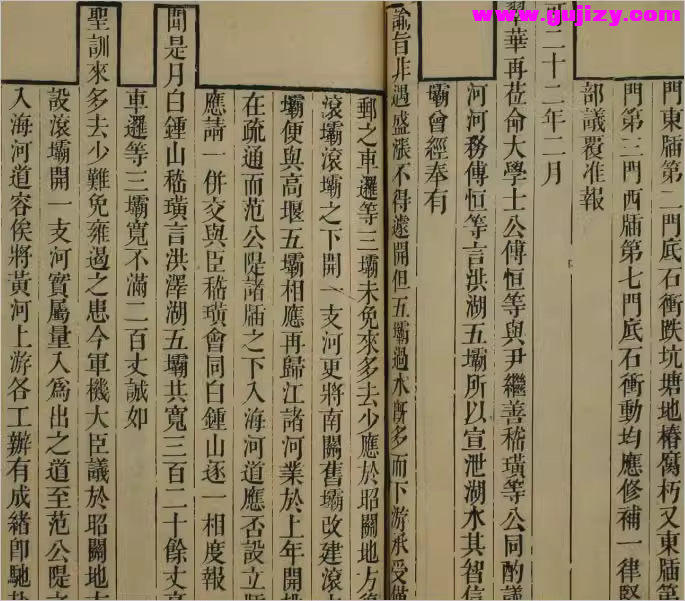 www.gujizy.com
門東牐第二門底石衝跌坑塘地樁腐朽又東牐第
門第三門西牐第七門底石衝動均應修補一律堅
部議覆准報
二十二年二月
翠華再莅命大學士公傅恒等與尹繼善嵇璜等公同酌議
河河務傅恒等言洪湖五壩所以宣泄湖水其智信
壩曾經奉有
諭旨非遇盛漲不得遽開但五壩過水旣多而下游承受
郵之車邏等三壩未免來多去少應於昭關地方
滾壩滾壩之下開一支河更將南關舊壩改建滾
壩便與高堰五壩相應再歸江諸河業於上年開
在疏通而范公隄諸牐之下入海河道應否設立
應請一併交與臣嵇璜會同白鍾山逐一相度報
聞是月白鍾山嵇璜言洪澤湖五壩共寬三百二十餘丈
車邏等三壩寬不滿二百丈誠如
聖訓來多去少難免雍遏之患今軍機大臣議於昭關地
設滾壩開一支河實屬量入爲出之道至范公隄之
入海河道容俟將黃河上游各工辦有成緒卽馳